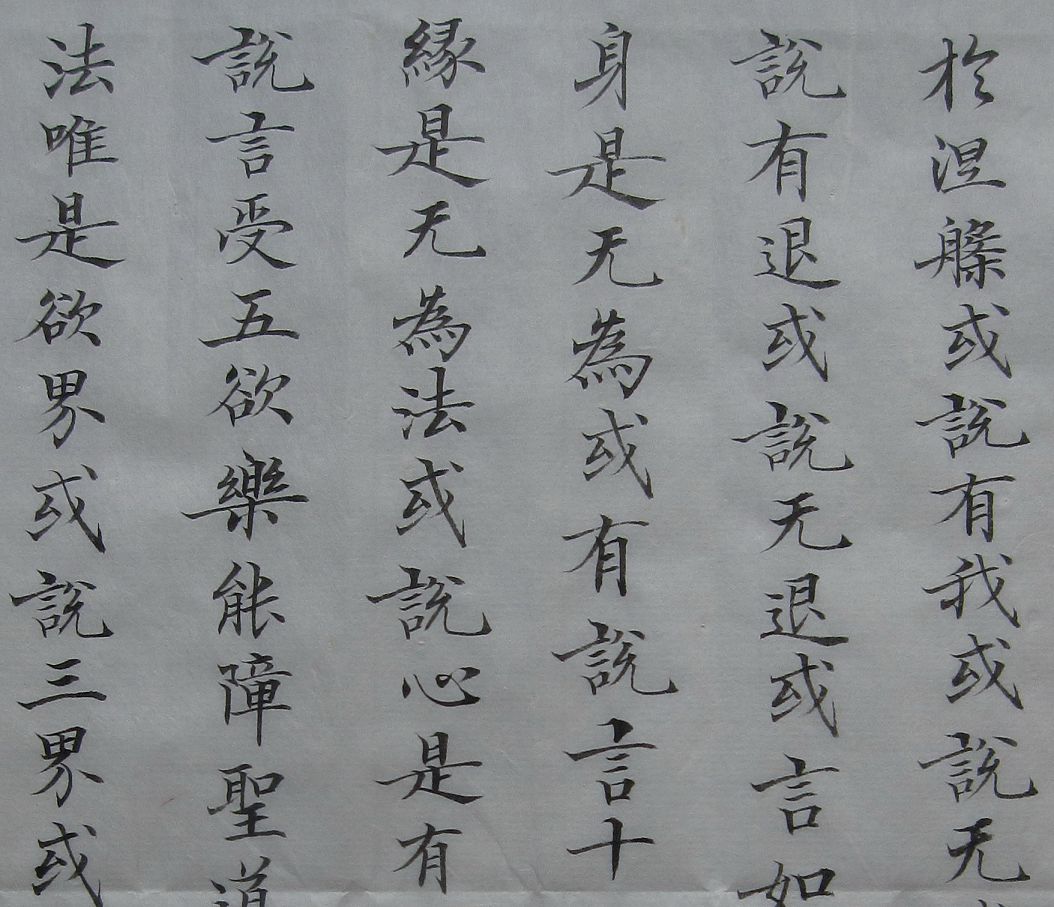 於涅槃或說有我或說无
說有退或說无退或言如
身是无為或有說言十
緣是无為法或說心是有
說言受五欲樂能障聖道
法唯是欲界或說三界或